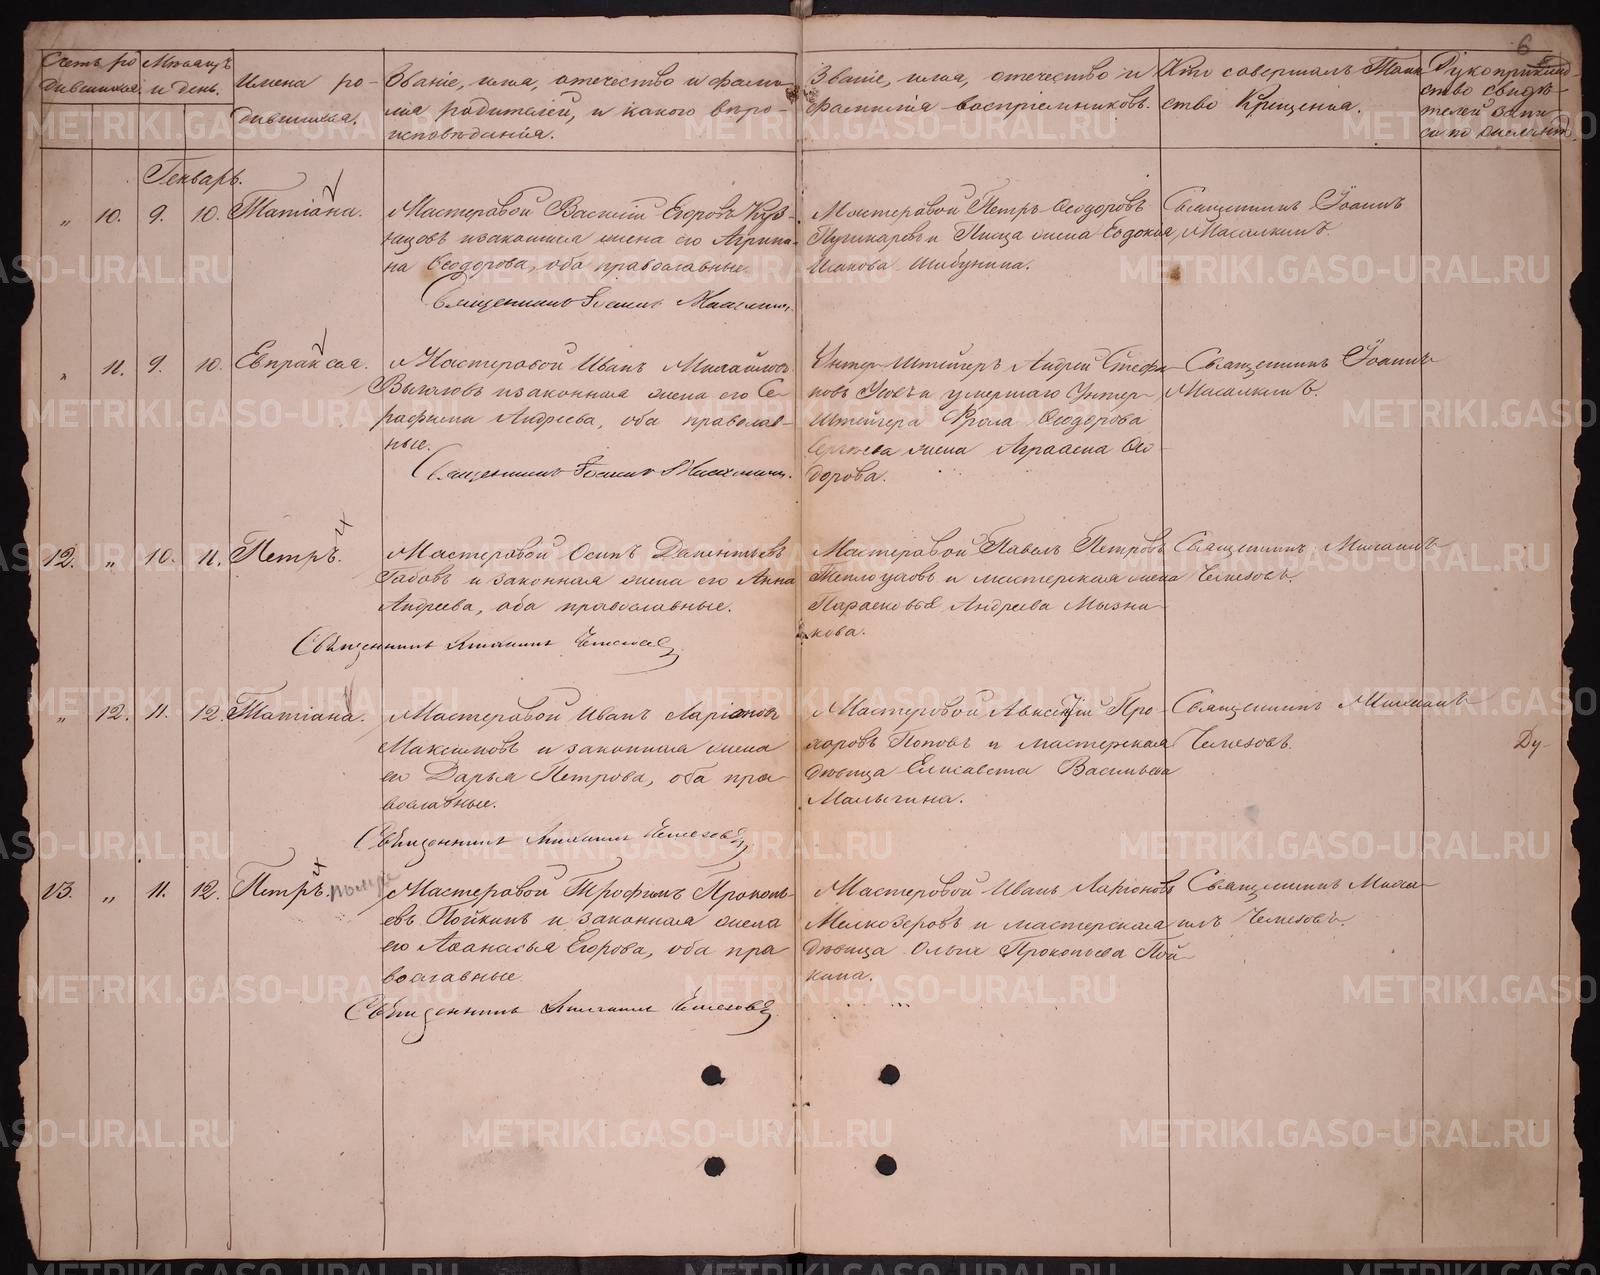 6
Счетъ ро
дившихся
Мѣсяцъ
и день.
Имена ро-
дившихся.
Званіе, имя, отечество и фами-
лія родителей, и какого вѣро-
исповѣданія.
Званіе, имя, отечество и
фамилія воспріемниковъ.
Кто совершалъ Таин
ство Крещенія.
Рукоприклад-
ство свидѣ-
телей запи
си по
Генварь.
„ 10. 9. 10. Татіана.
Мастеровой Василій Егоровъ Куз-
нецовъ и законная жена его Агрипи-
на Ѳеодорова, оба православные.
Священникъ Іоаннъ
Мастеровой Петръ Ѳеодоровъ
Пушкаревъ и жена Евдокія
Исакова Шибунина.
Священникъ Іоаннъ
Масалкинъ.
„ 11. 9. 10. Евпраксія.
Мастеровой Иванъ Михайловъ
и законная жена его Се-
рафима Андреева, оба православ-
ные.
Священникъ Іоаннъ
Унтер Штейгеръ Андрей Стефа
новъ и умершаго Унтер
Штейгера Фрола Ѳеодорова
Сергѣева жена Ѳео-
дорова.
Священникъ Іоаннъ
Масалкинъ.
12. „ 10. 11. Петръ.
Мастеровой Осипъ Даментьевъ
Бабовъ и законная жена его Анна
Андреева, оба православные.
Священникъ Михаилъ Чемезовъ
Мастеровой Павелъ Петровъ
Теплоуховъ и мастерская жена
Парасковья Андреева Мызни-
кова.
Священникъ Михаилъ
Чемезовъ.
„ 12. 11. 12. Татіана.
Мастеровой Иванъ Ларіоновъ
Максимовъ и законная жена
его Дарья Петрова, оба пра-
вославные.
Священникъ Михаилъ Чемезовъ
Мастеровой Авксентій Про-
хоровъ Поповъ и мастерская
дѣвица Елисавета Васильева
Малыгина.
Священникъ Михаилъ
Чемезовъ.
Ду-
13. „ 11. 12. Петръ. померъ
Мастеровой Трофимъ Прокопь-
евъ Пойкинъ и законная жена
его Аѳанасья Егорова, оба пра
вославные.
Священникъ Михаилъ Чемезовъ
Мастеровой Иванъ Ларіоновъ
Мелкозеровъ и мастерская
дѣвица Ольга Прокопьева Пой-
кина.
Священникъ Миха-
илъ Чемезовъ.
METRIKI.GASO-URAL.RU